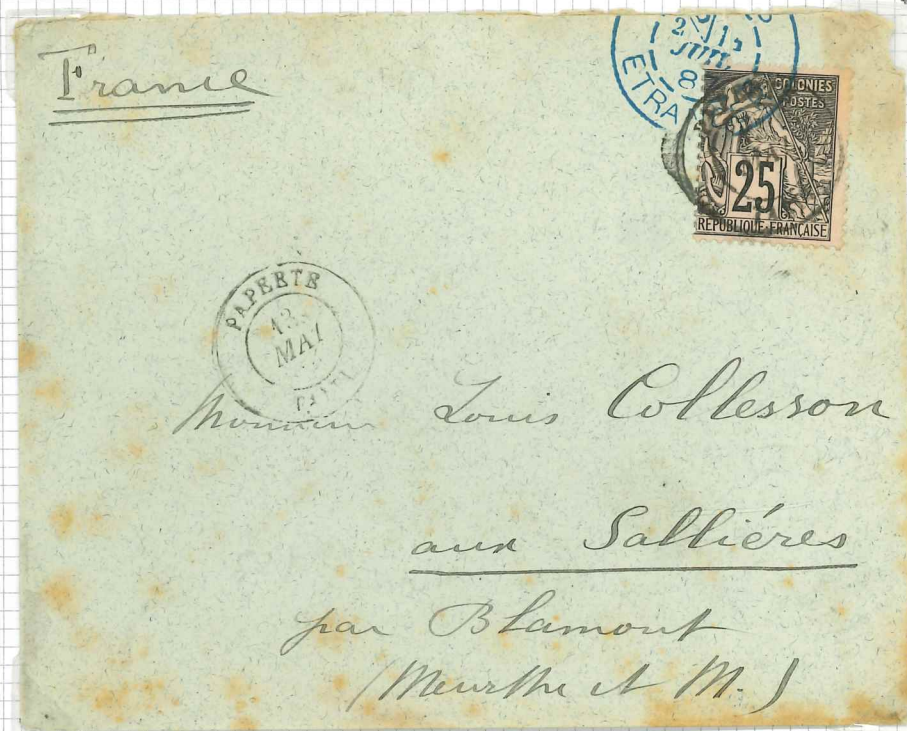 France
JUIL
8
ETRA
COLONIES
POSTES
25
RÉPUBLIQUE FRANÇAISE
PAPEETE
13
MAI
TAITI
Monsieur Louis Collesson
aux Salliéres
par Blamont
(Meurthe et M.)